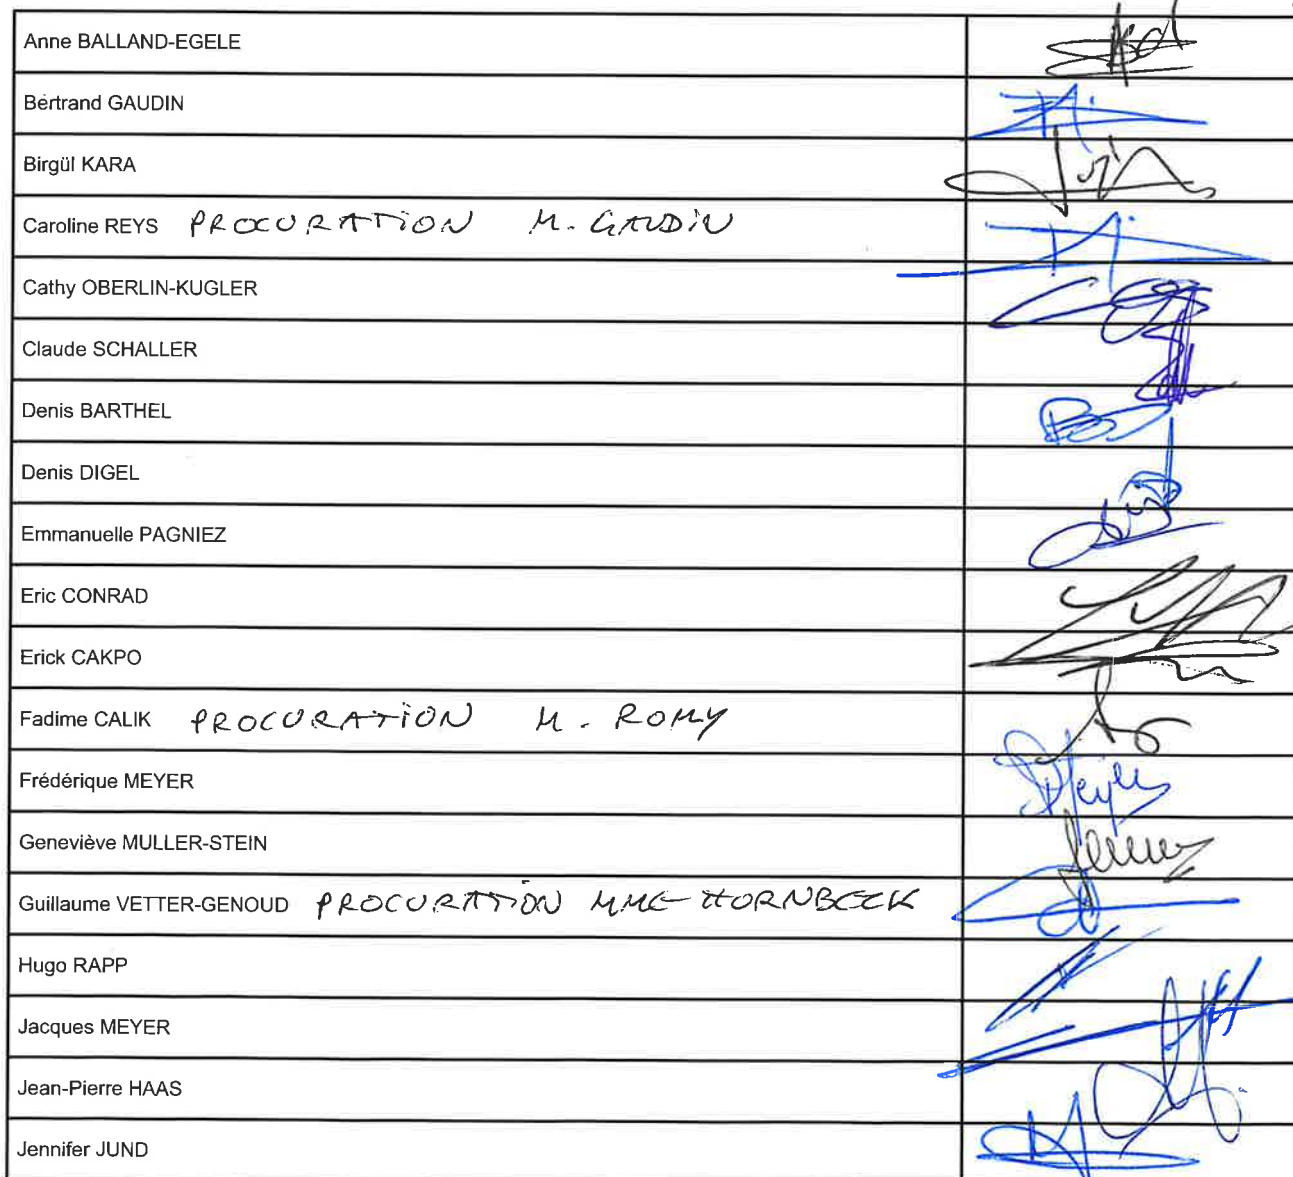 Anne BALLAND-EGELE
Bertrand GAUDIN
Birgül KARA
Caroline REYS PROCURATION M. GAUDIN
Cathy OBERLIN-KUGLER
Claude SCHALLER
Denis BARTHEL
Denis DIGEL
Emmanuelle PAGNIEZ
Eric CONRAD
Erick CAKPO
Fadime CALIK PROCURATION M. ROMY
Frédérique MEYER
Geneviève MULLER-STEIN
Guillaume VETTER-GENOUD PROCURATION MME HORNBECK
Hugo RAPP
Jacques MEYER
Jean-Pierre HAAS
Jennifer JUND